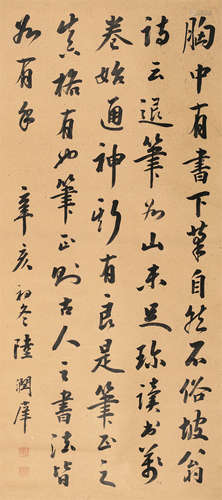 胸中有書下筆自然不俗坡翁
詩云退筆如山未足珍讀書萬
卷始通神斯有良是筆正之
格有如筆正則古人之書法皆
如有
辛亥初冬陸潤庠